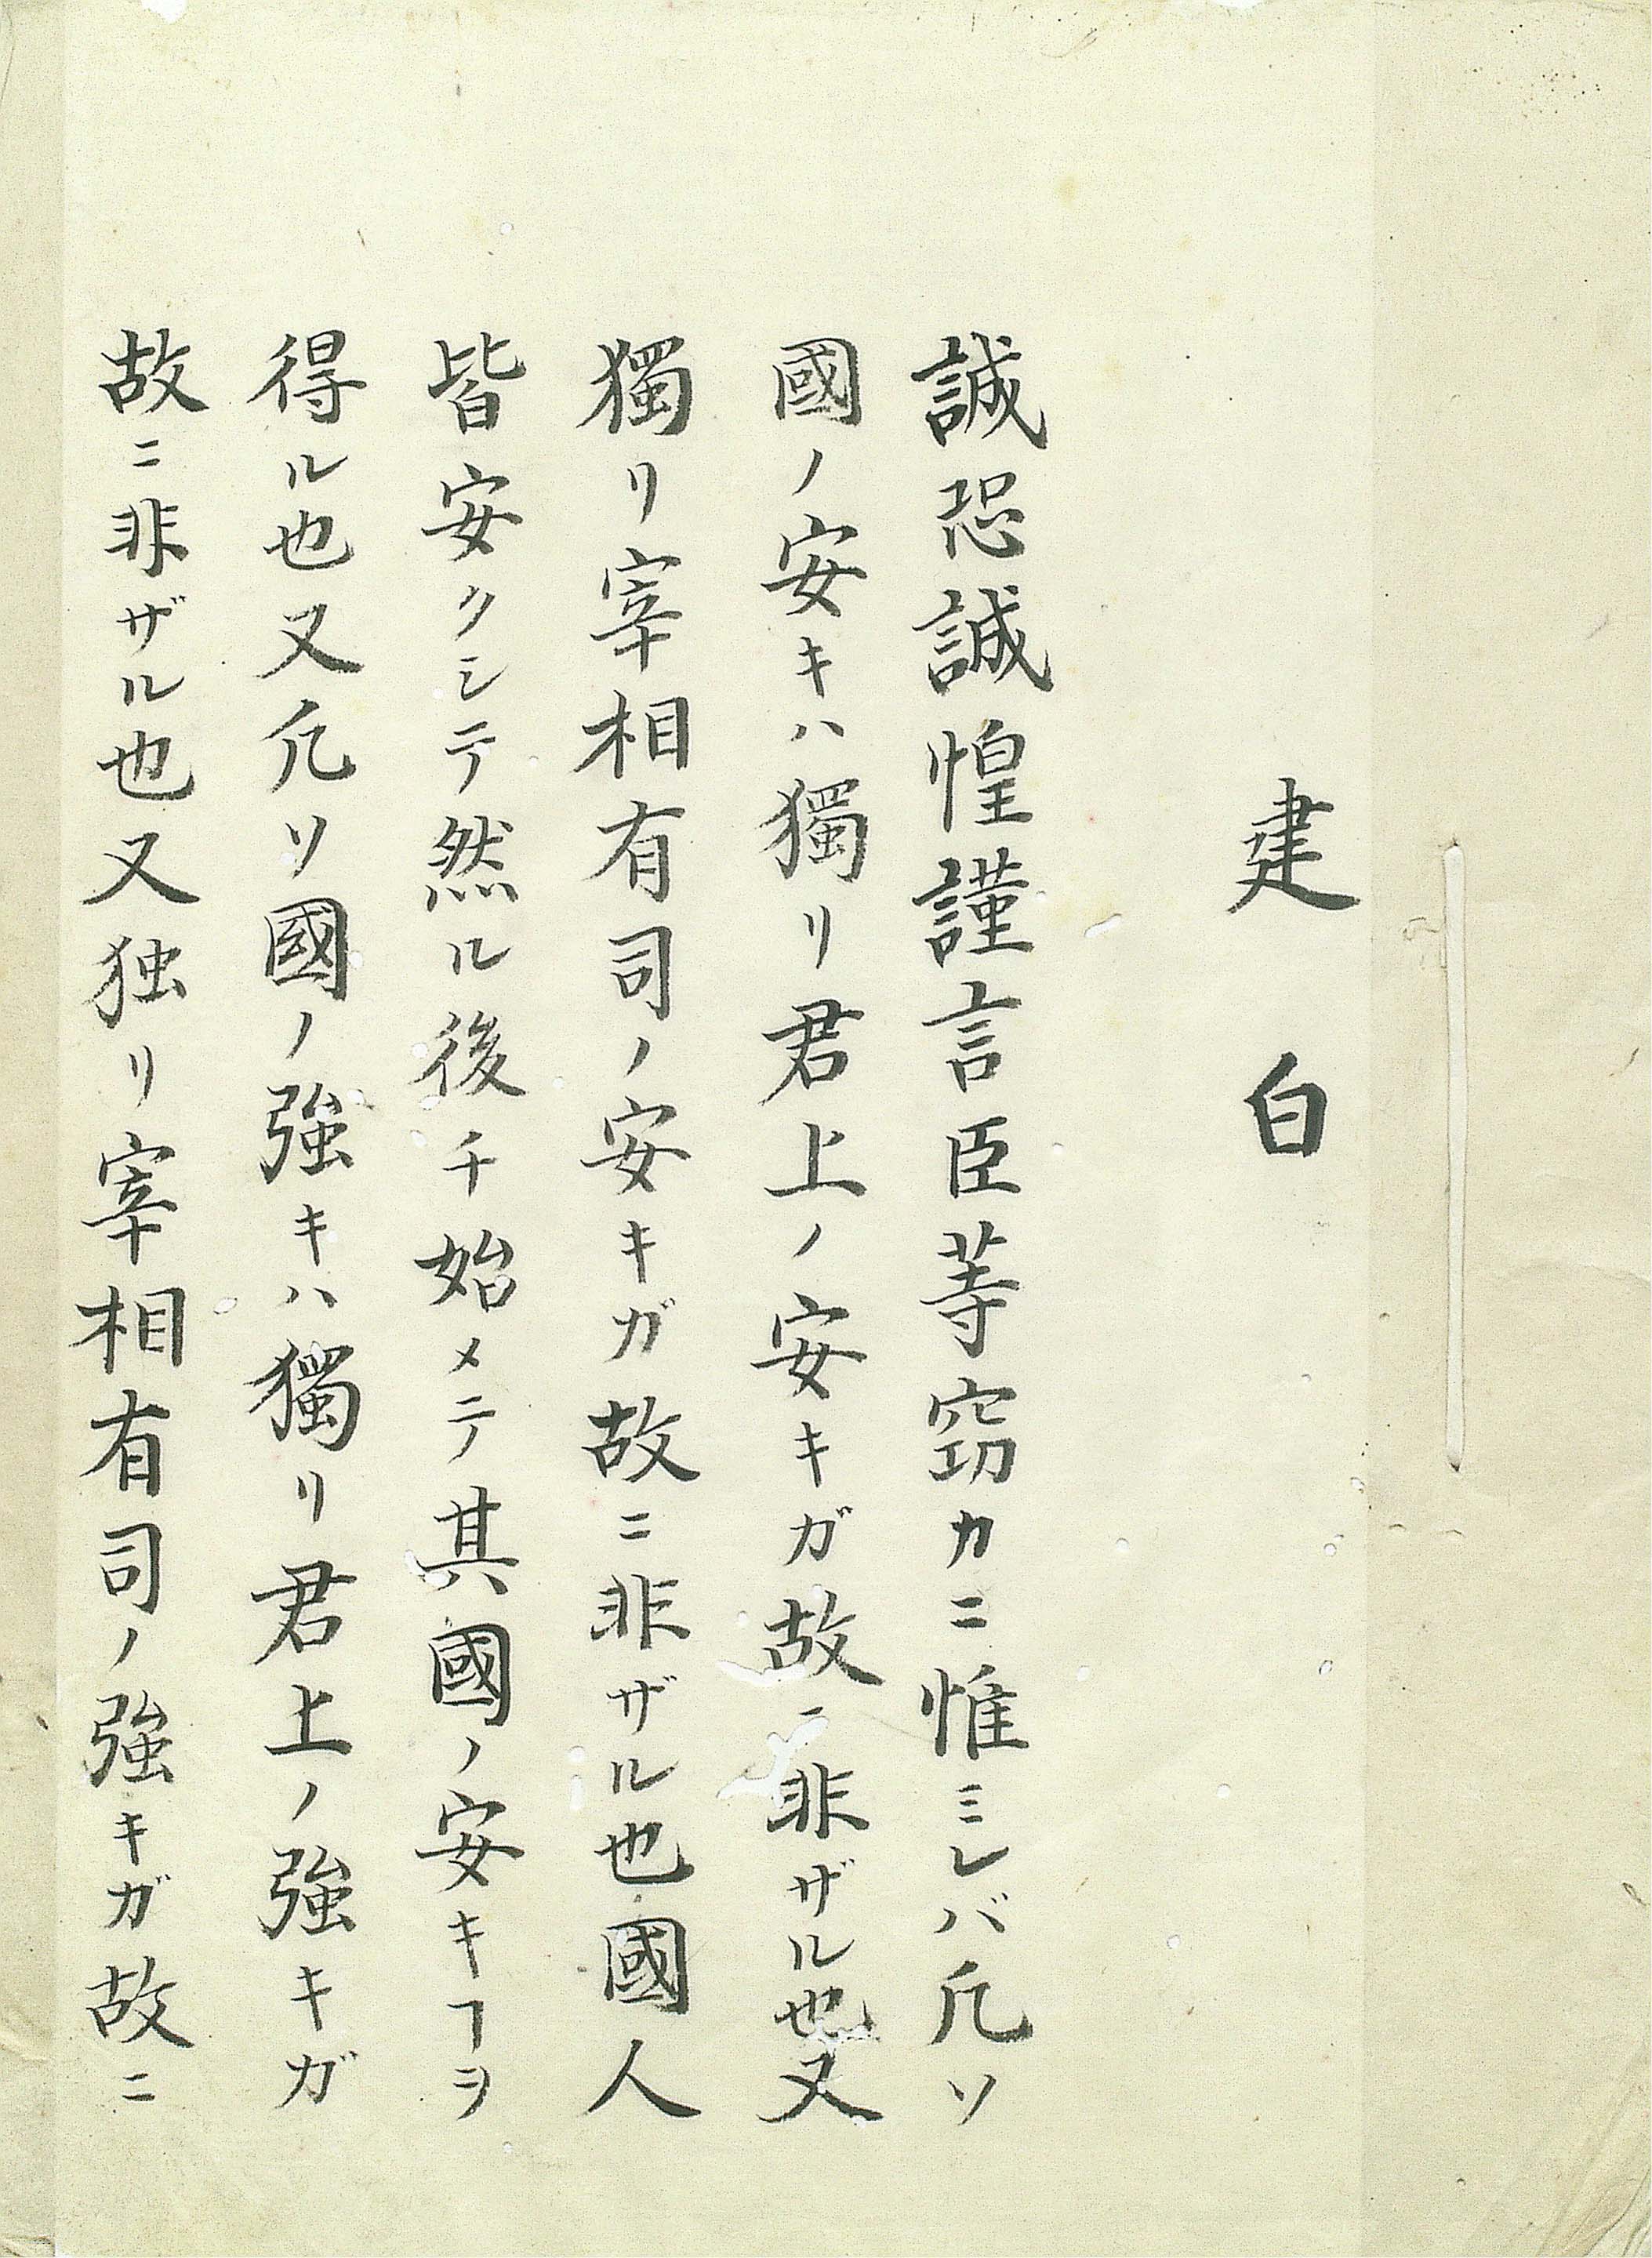 建白
誠恐誠惶謹言臣等窃カニ惟ミレバ凡ソ
國ノ安キハ獨リ君上ノ安キガ故ニ非ザル也又
獨リ宰相有司ノ安キガ故ニ非ザル也國人
皆安クシテ然ル後チ始メテ其國ノ安キヿヲ
得ル也又凡ソ國ノ強キハ獨リ君上ノ強キガ
故ニ非ザル也又独リ宰相有司ノ強キガ故ニ